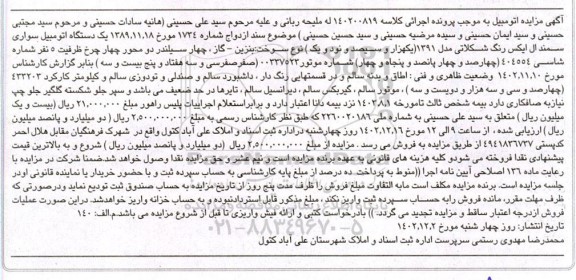 آگهی مزایده اتومبیل به موجب پرونده اجرائی کلاسه ۱۴۰۲۰۰۸۱۹ له ملیحه ربانی و علیه مرحوم سید علی حسینی (هانیه سادات حسینی و مرحوم سید مجتبی
حسینی و سید ایمان حسینی و سیده مرضیه حسینی و سید حسین حسینی ) موضوع سند ازدواج شماره ۱۷۳۴ مورخ ۱۳۸۹.۱۱.۱۸ یک دستگاه اتومبیل سواری
سمند ال ایکس رنگ شکلاتی مدل ۱۳۹۱(یکهزارو سیصد و نود و یک )نوع سوخت:بنزین - گاز، چهار سیلندر دو محور چهار چرخ ظرفیت ۵ نفر شماره
شاسی ۴۰۴۵۵۴ (چهارصد و چهار پانصد و پنجاه و چهار)شماره موتور۰۰۳۳۷۵۲۳ (صفرصفرسی و سه هفتاد و پنج بیست و سه ) بنابر گزارش کارشناس
۱۴۰۲.۱۱.۱۰ مورخ وضعیت ظاهری و فنی : اطاق سالم و در قسمتهایی رنگ دار ، داشبورد سالم و صندلی و تودوزی سالم و کیلومتر کارکرد ۴۳۲۲۰۳
(چهارصد و سی و سه هزار و دویست و سه ) ، موتور سالم ، گیربکس سالم ، دیرانسیل سالم ، تایرها در حد ضعیف می باشد و سپر جلو شکسته گلگیر جلو چپ
نیازبه صافکاری دارد بیمه شخص ثالث تامورخه ۱۴۰۲.۸.۱ نزد بیمه دانا اعتبار دارد و برابراستعلام اجراییات پلیس راهور مبلغ ۲۱.۰۰۰.۰۰۰ ریال (بیست و یک
میلیون ریال ) متعلق به سید علی حسینی به شماره ملی ۲۲۶۶۰۰۲۰۱۸۹ طبق نظر کارشناس رسمی به مبلغ ۲.۵۰۰.۰۰۰.۰۰۰ ریال (دو میلیارد و پانصد میلیون
ریال ) ارزیابی شده ، از ساعت ۹ الی ۱۲ مورخ ۱۴۰۲.۱۲.۱۶ روز چهارشنبه دراداره ثبت اسناد و املاک علی آباد کتول واقع در شهرک فرهنگیان مقابل هلال احمر
کدپستی ۴۹۴۱۸۳۶۷۳۷ از طریق مزایده به فروش می رسد . مزایده از مبلغ ۲.۵۰۰.۰۰۰.۰۰۰ ریال (دو میلیارد و پانصد میلیون ریال ) شروع و به بالاترین قیمت
پیشنهادی نقدا فروخته می شودو کلیه هزینه های قانونی به عهده برنده مزایده است و نیم عشر و حق مزایده نقدا وصول خواهد شد.ضمنا شرکت در مزایده با
رعایت ماده ۱۳۶ اصلاحی آیین نامه اجرا ((منوط به پرداخت ده درصد از مبلغ پایه کارشناسی به حساب سپرده ثبت و با حضور خریدار یا نماینده قانونی اودر
جلسه مزایده است. برنده مزایده مکلف است مابه التفاوت مبلغ فروش را ظرف مدت پنج روز از تاریخ مزایده به حساب صندوق ثبت تودیع نماید ودرصورتی که
ظرف مهلت مقرر، مانده فروش رابه حساب سپرده ثبت واریز نکند ، مبلغ مذکور قابل استردادنبوده و به حساب خزانه واریز خواهدشد. دراین صورت عملیات
فروش ازدرجه اعتبار ساقط و مزایده تجدید می گردد. )) بادرخواست کتبی و ارائه فیش واریزی تا قبل از شروع مزایده می باشد.م.الف: ۱۴۰
تاریخ انتشار: روز چهار شنبه مورخ ۱۴۰۲.۱۲.۲
محمدرضا مهدوی رستمی سرپرست اداره ثبت اسناد و املاک شهرستان علی آباد کتول
۰۲۱-۸۸۳۴۹۶۷۰-۵